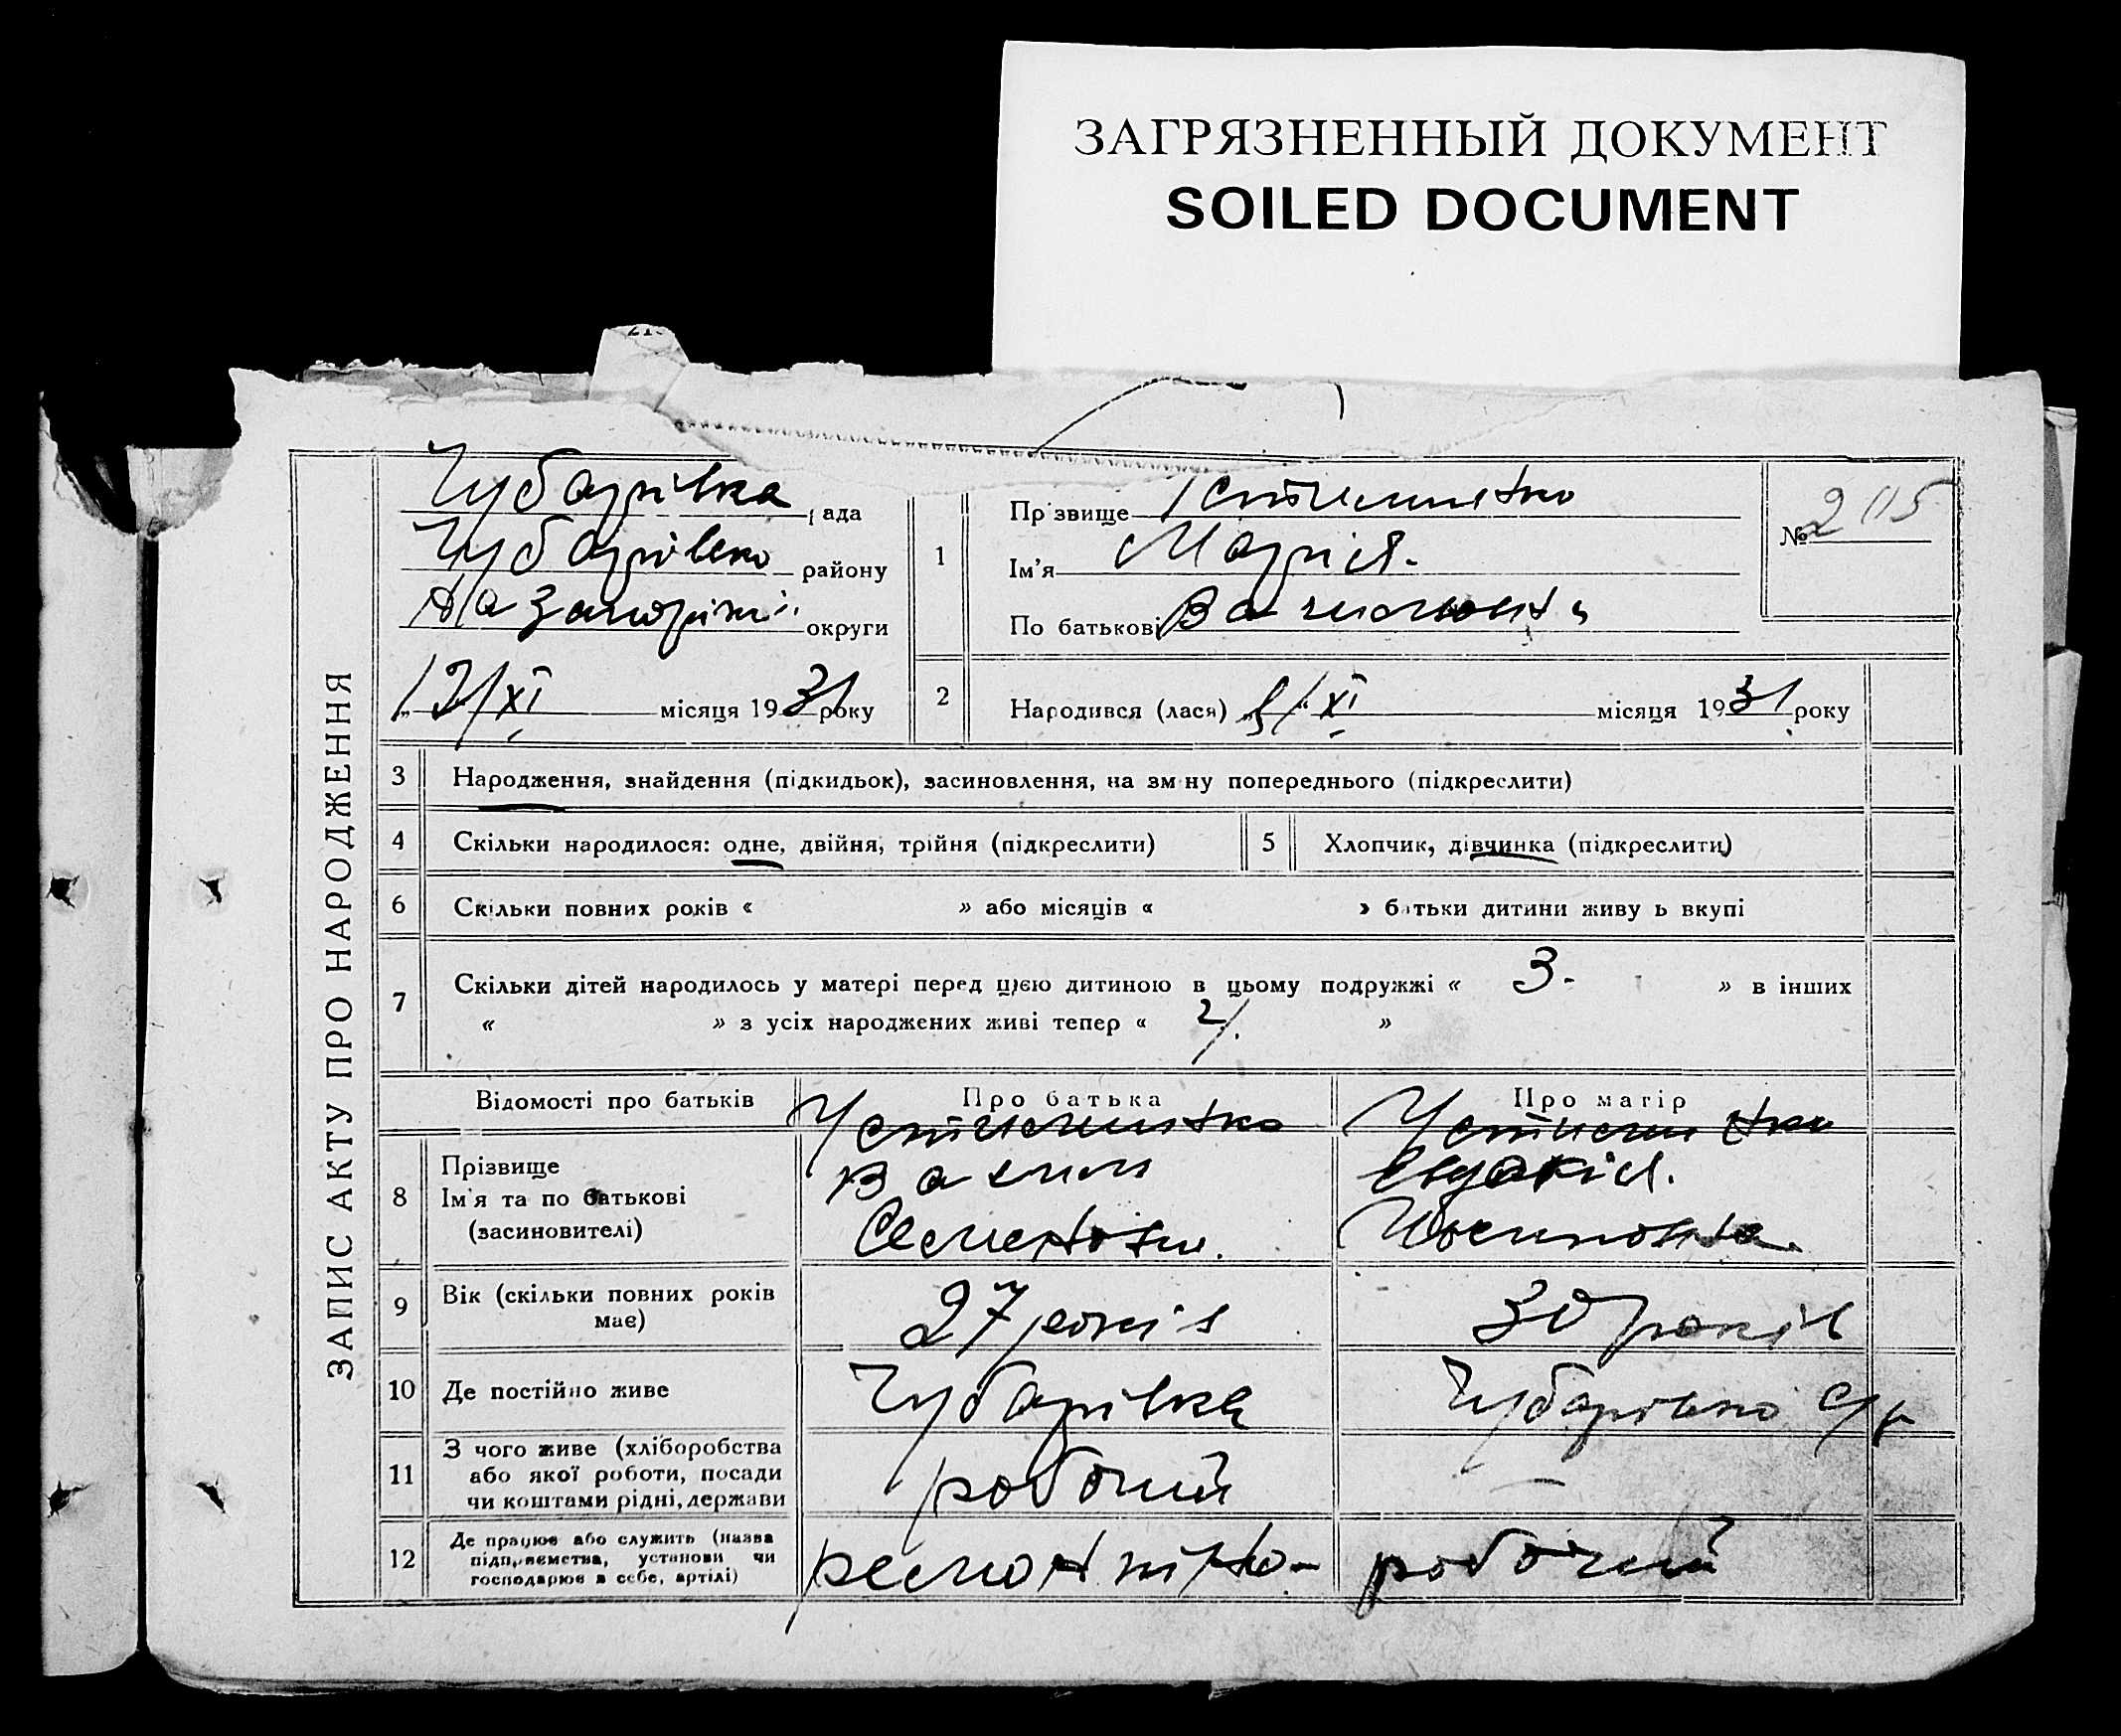 ЗАГРЯЗНЕННЫЙ ДОКУМЕНТ
SOILED DOCUMENT
ЗАПИС АКТУ ПРО НАРОДЖЕННЯ
Чубарівка рада
Чубарівсько району
на Запоріжі округи
„12/XI місяця 1931 року
1
Прізвище Устименко
Ім'я Марія.
По батькові
№ 205
2
Народився (лася) „ XI місяця 1931 року
3 Народження, знайдення (підкидьок), засиновлення, на зміну попереднього (підкреслити)
4 Скільки народилося: одне, двійня, трійня (підкреслити)
5 Хлопчик, дівчинка (підкреслити)
6 Скільки повних років « » або місяців « » батьки дитини живуть вкупі
7 Скільки дітей народилось у матері перед цією дитиною в цьому подружжі « 3- » в інших
« » з усіх народжених живі тепер « 2/. »
Відомості про батьків Про батька Про матір
8 Прізвище Устименко Устименко
Ім'я та по батькові Євдокія.
(засиновителі)
9 Вік (скільки повних років має) 27 років 30 років
10 Де постійно живе Чубарівка
11 З чого живе (хліборобства або якої роботи, посади чи коштами рідні, держави робочий —
12 Де працює або служить (назва підприємства, установи чи господарює в себе, артілі) ремонтно- робочий